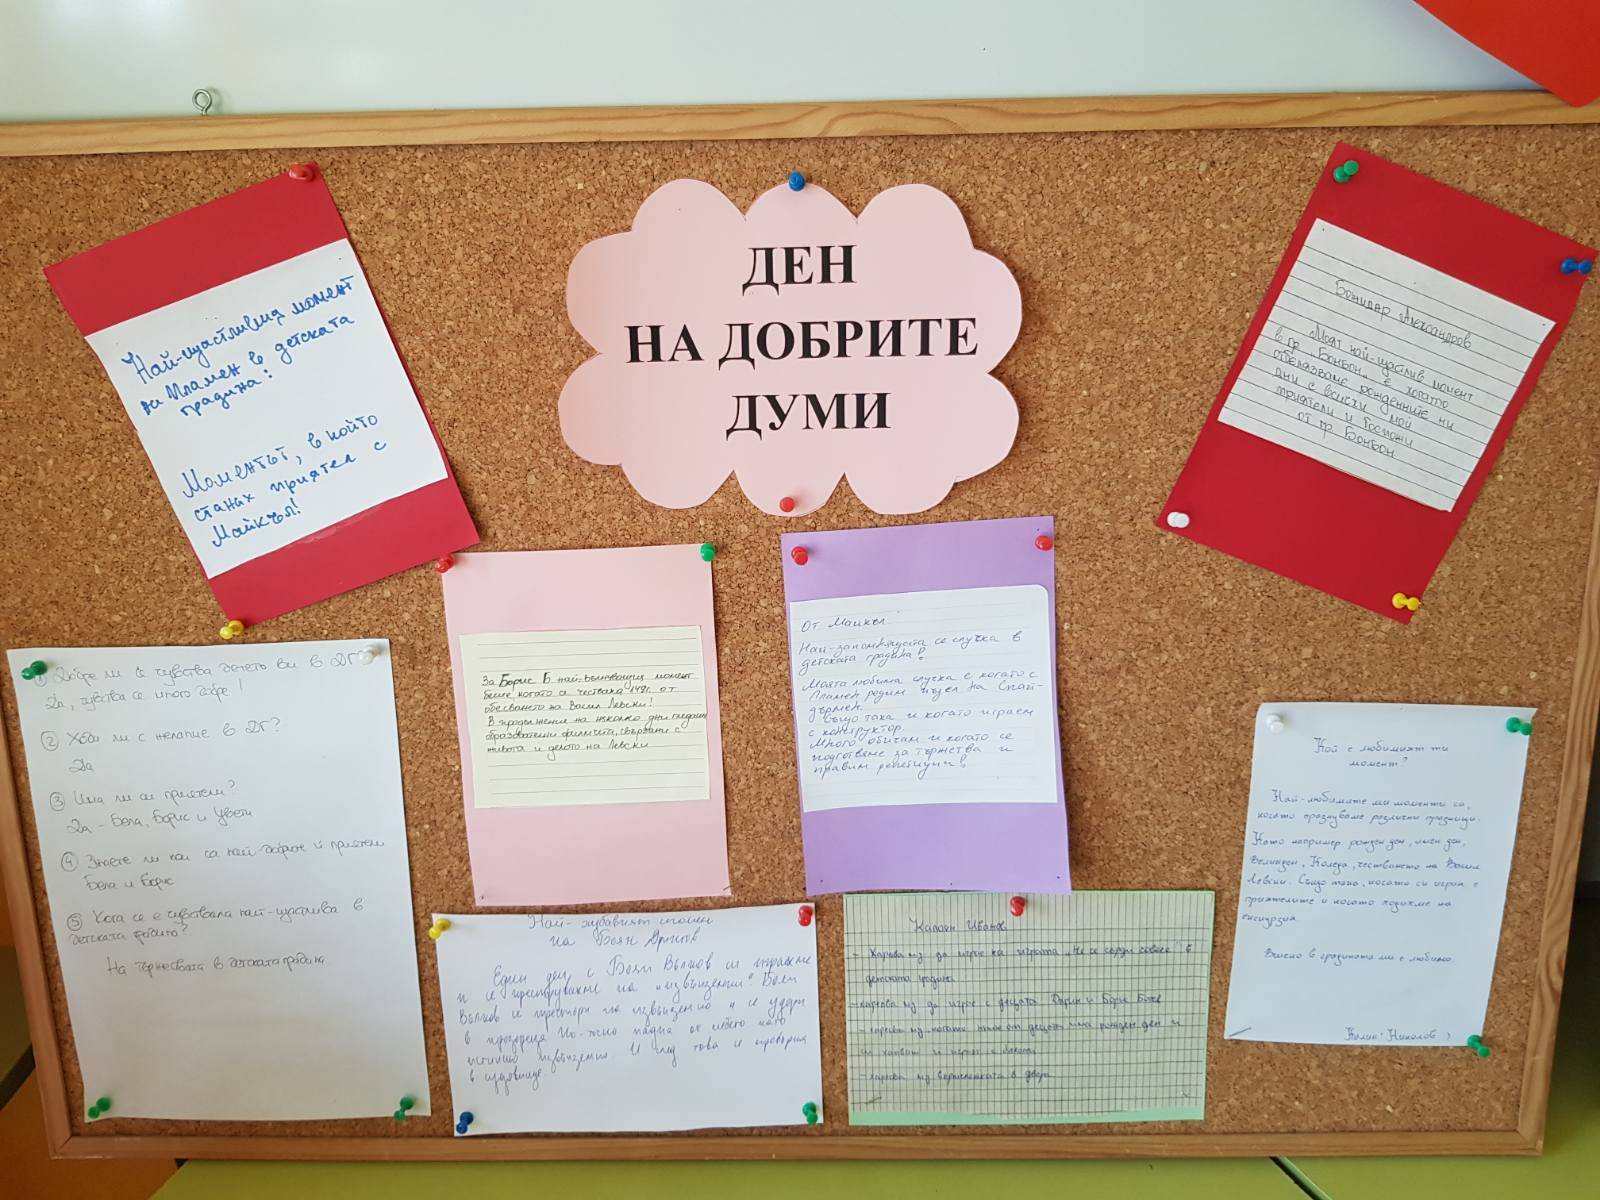 ДЕН
НА ДОБРИТЕ
ДУМИ
Най-щастливия момент
на Пламен в детската
градина:
Моментът, в който
станах приятел с
Майкъл!
Божидар Александров
Моят най-щастлив момент
в гр. „Бонбон" е когато
отбелязваме рожденните ни
дни с всички мой
приятели и Госпожи
от гр. Бонбон
За Борис Б най-вълнуващия момент
беше, когато се чества 149г. от
обесването на Васил Левски!
В продължение на няколко дни гледаше
образователни филмчета, свързани с
живота и делото на Левски
От Майкъл
Най-запомнящата се случка в
детската градина!
Моята любима случка е когато с
Пламен родим пъзел на Спай-
дърмен.
Също така и когато играем
с конструктор.
Много обичам и когато се
подготвяме за тържества и
правим репетиции
1 Добре ли се чувства детето ви в ДГ?
Да, чувства се много добре!
2 Ходи ли с желание в ДГ?
Да
3 Има ли си приятели?
Да - Бела, Борис и Цвети
4 Знаете ли кои са най-добрите ѝ приятели
Бела и Борис
5 Кога се е чувствала най-щастлива в
детската градина?
На тържествата в детската градина
Най-хубавият спомен
на Боян
Един ден с Боян Вълков си играехме
и се преструвахме на "извънземни". Боян
Вълков се престори на извънземно и се удари
в прозореца. По-точно падна от небето като
истинско извънземно. И след това се превърна
в чудовище.
Калоян Иванов
- Харесва му да играе на играта „Не се сърди човече" в
детската градина
- харесва му да играе с децата Дарин и Борис Ботев
- харесва му, когато някое от децата има рожден ден и
си хапват и играе с балони
- харесва му въртележката в двора
Кой е любимият ти
момент?
Най-любимите ми моменти са,
когато празнуваме различни празници.
Като например рожден ден, имен ден,
Великден, Коледа, честването на Васил
Левски. Също така, когато си играя с
приятелите и когато ходихме на
екскурзия.
Всичко в градината ми е любимо.
Николов :)